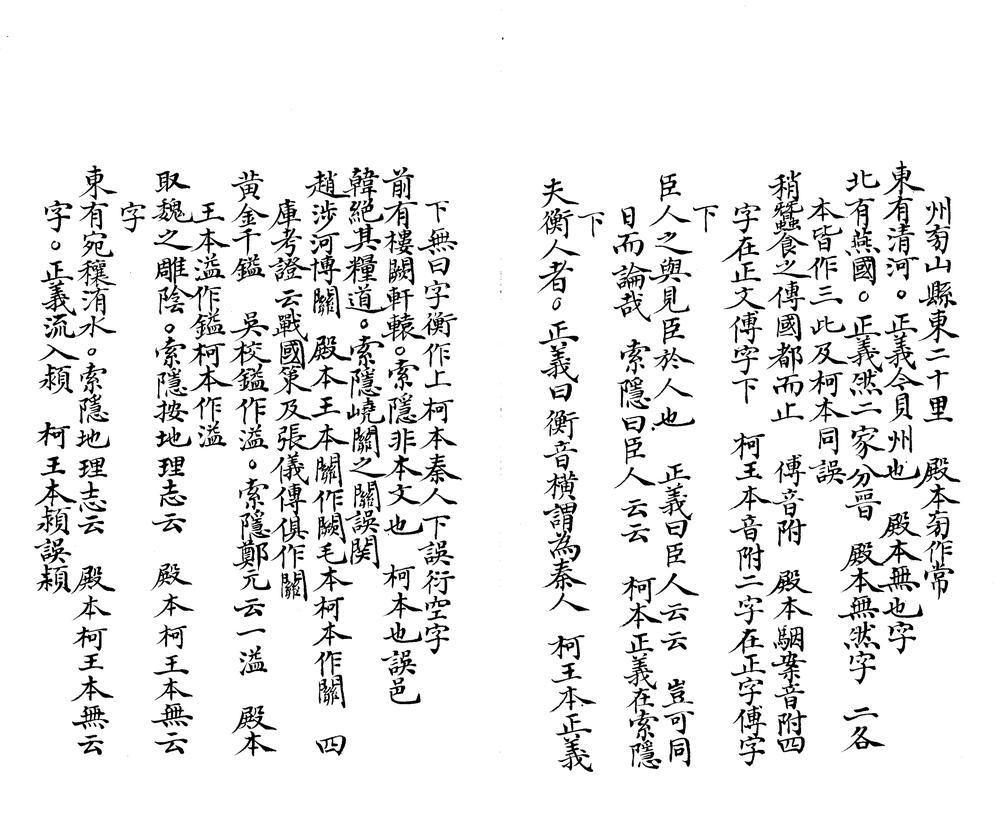 州旁山縣東二十里　殿本旁作常
東有清河。正義今貝州也　殿本無也字
北有燕國。正義然二家分晉　殿本無然字　二各
本皆作三此及柯本同誤
稍蠶食之傅國都而止　傅音附　殿本駰案音附四
字在正文傅字下　柯王本音附二字在正字傅字
下
臣人之與見臣於人也　正義曰臣人云云　豈可同
日而論哉　索隱曰臣人云云　柯本正義在索隱
下
夫衡人者。正義曰衡音橫謂為秦人　柯王本正義
下無曰字衡作上柯本秦人下誤衍空字
前有樓闕軒轅。索隱非本文也　柯本也誤邑
韓絕其糧道。索隱嶢關之關誤関
趙涉河博關　殿本王本關作闕毛本柯本作關　四
庫考證云戰國策及張儀傳俱作關
黃金千鎰　吳校鎰作溢。索隱鄭元云一溢　殿本
王本溢作鎰柯本作溢
取魏之雕陰。索隱按地理志云　殿本柯王本無云
字
東有宛穰洧水。索隱地理志云　殿本柯王本無云
字。正義流入潁　柯王本潁誤頴